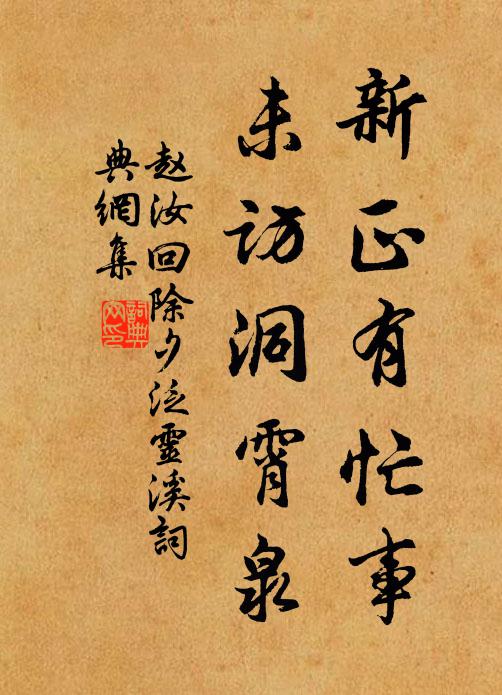 新正有忙事
未访洞霄泉
赵汝回除夕泛靈溪詞
典網集
詞典
网印